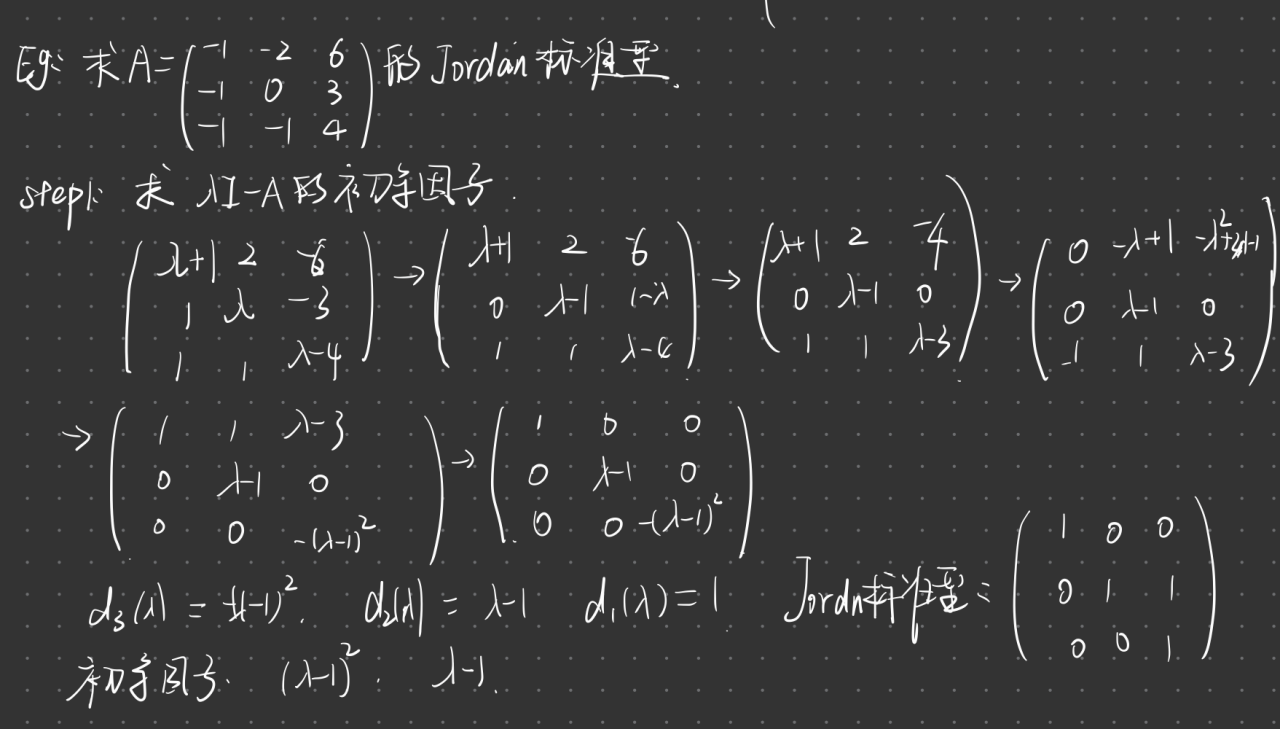 Eg: 求A=(-1 -2 6; -1 0 3; -1 -1 4)的Jordan标准型.
step1: 求 λI-A的初等因子.
(λ+1 2 -6; 1 λ -3; 1 1 λ-4) → (λ+1 2 -6; 0 λ-1 1-λ; 1 1 λ-4) → (λ+1 2 -4; 0 λ-1 0; 1 1 λ-3) → (0 -λ+1 -λ²+2λ-1; 0 λ-1 0; 1 1 λ-3)
→ (1 1 λ-3; 0 λ-1 0; 0 0 -(λ-1)²) → (1 0 0; 0 λ-1 0; 0 0 -(λ-1)²)
d₃(λ) = (λ-1)². d₂(λ) = λ-1 d₁(λ) = 1 Jordn标准型: (1 0 0; 0 1 1; 0 0 1)
初等因子: (λ-1)². λ-1.